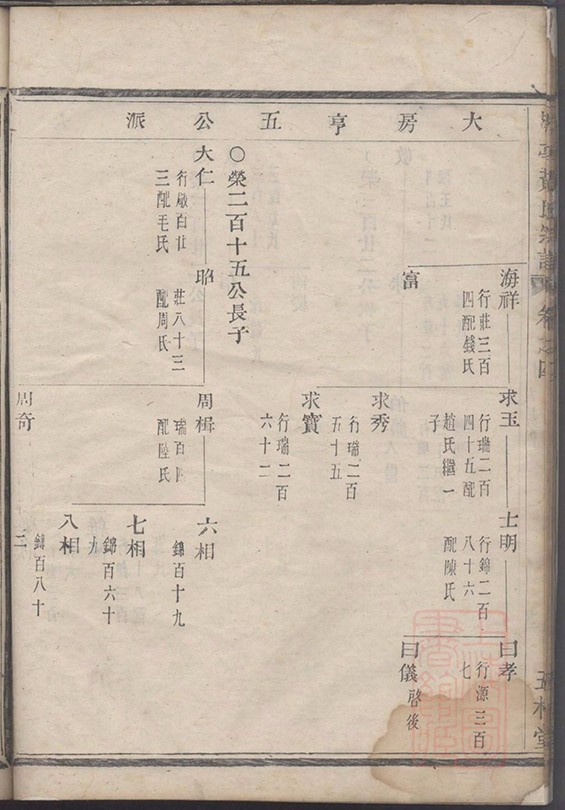 大房亨五公派
海祥
行莊三百
四配錢氏
求玉
行瑞二百
四十五配
趙氏繼一
子
士明
行錦二百
八十六
配陳氏
曰孝
行源三百
七
富
求秀
行瑞二百
五十五
曰儀
啓後
求寶
行瑞二百
六十二
○榮二百十五公長子
大仁
行啟百廿
三配毛氏
昭
莊八十三
配周氏
周楫
瑞百四
配陸氏
六相
錦百十九
七相
錦百六十
九
八相
錦百八十
三
周奇